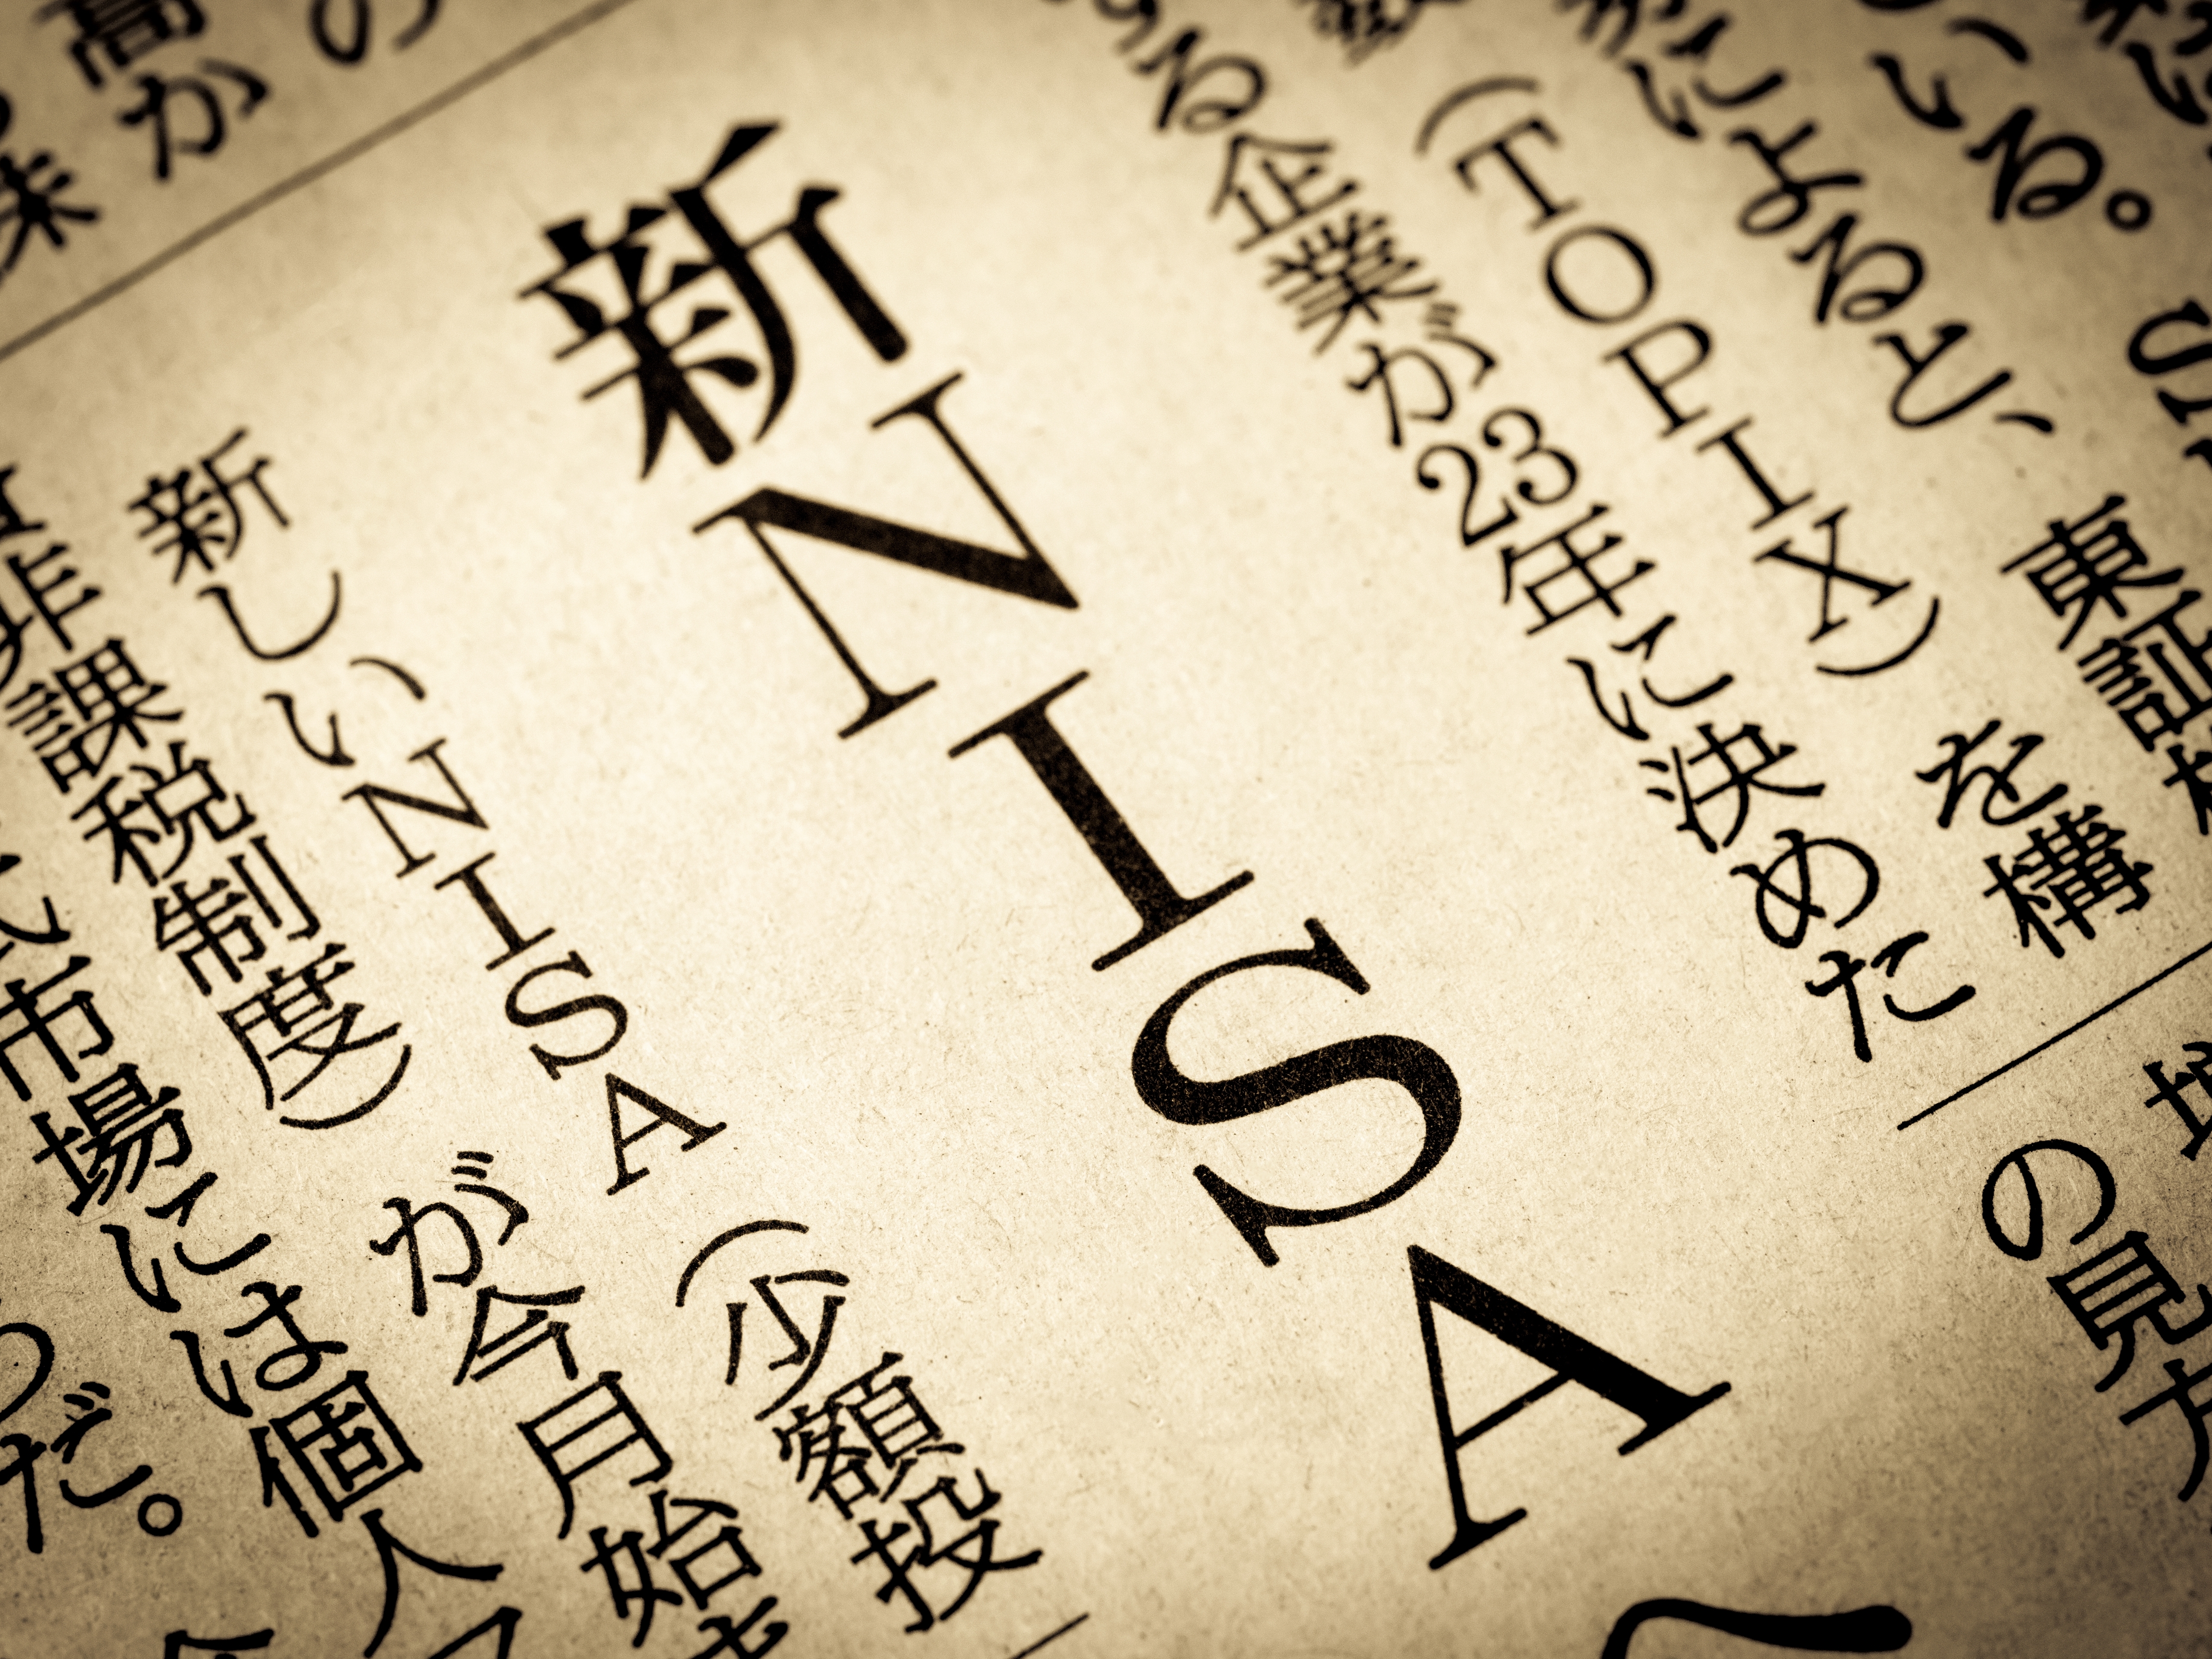 いる。
東証
によると、
(TOPIX)を構
る企業が23年に決めた
の見方
新NISA
新しいNISA(少額投
非課税制度)が今月始ま
市場には個人マ
だ。
高か
の